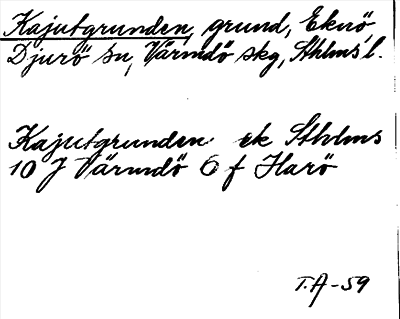 Kajutgrunden, grund, Eknö,
Djurö sn, Värmdö skg, Sthlms l.
Kajutgrunden ek Sthlms
10 J Värmdö 6 f Harö
T.A-59